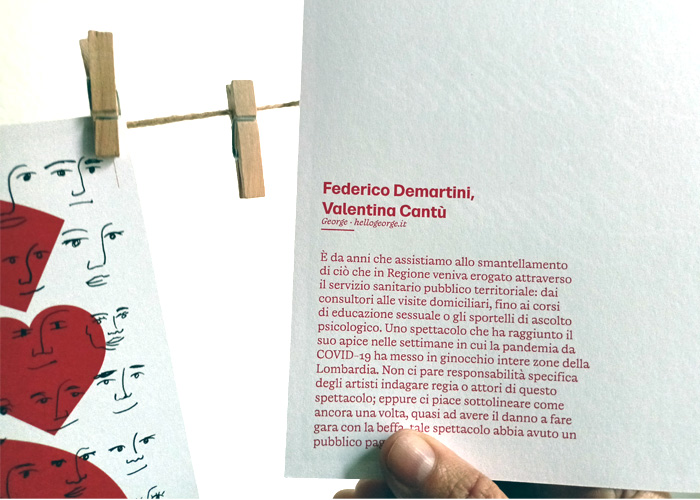 Federico Demartini,
Valentina Cantù
George · hellogeorge.it
È da anni che assistiamo allo smantellamento
di ciò che in Regione veniva erogato attraverso
il servizio sanitario pubblico territoriale: dai
consultori alle visite domiciliari, fino ai corsi
di educazione sessuale o gli sportelli di ascolto
psicologico. Uno spettacolo che ha raggiunto il
suo apice nelle settimane in cui la pandemia da
COVID-19 ha messo in ginocchio intere zone della
Lombardia. Non ci pare responsabilità specifica
degli artisti indagare regia o attori di questo
spettacolo; eppure ci piace sottolineare come
ancora una volta, quasi ad avere il danno a fare
gara con la beffa, tale spettacolo abbia avuto un
pubblico